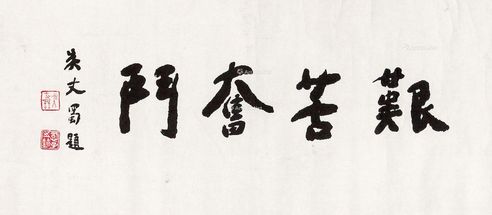 艱苦奮鬥
吳丈蜀題